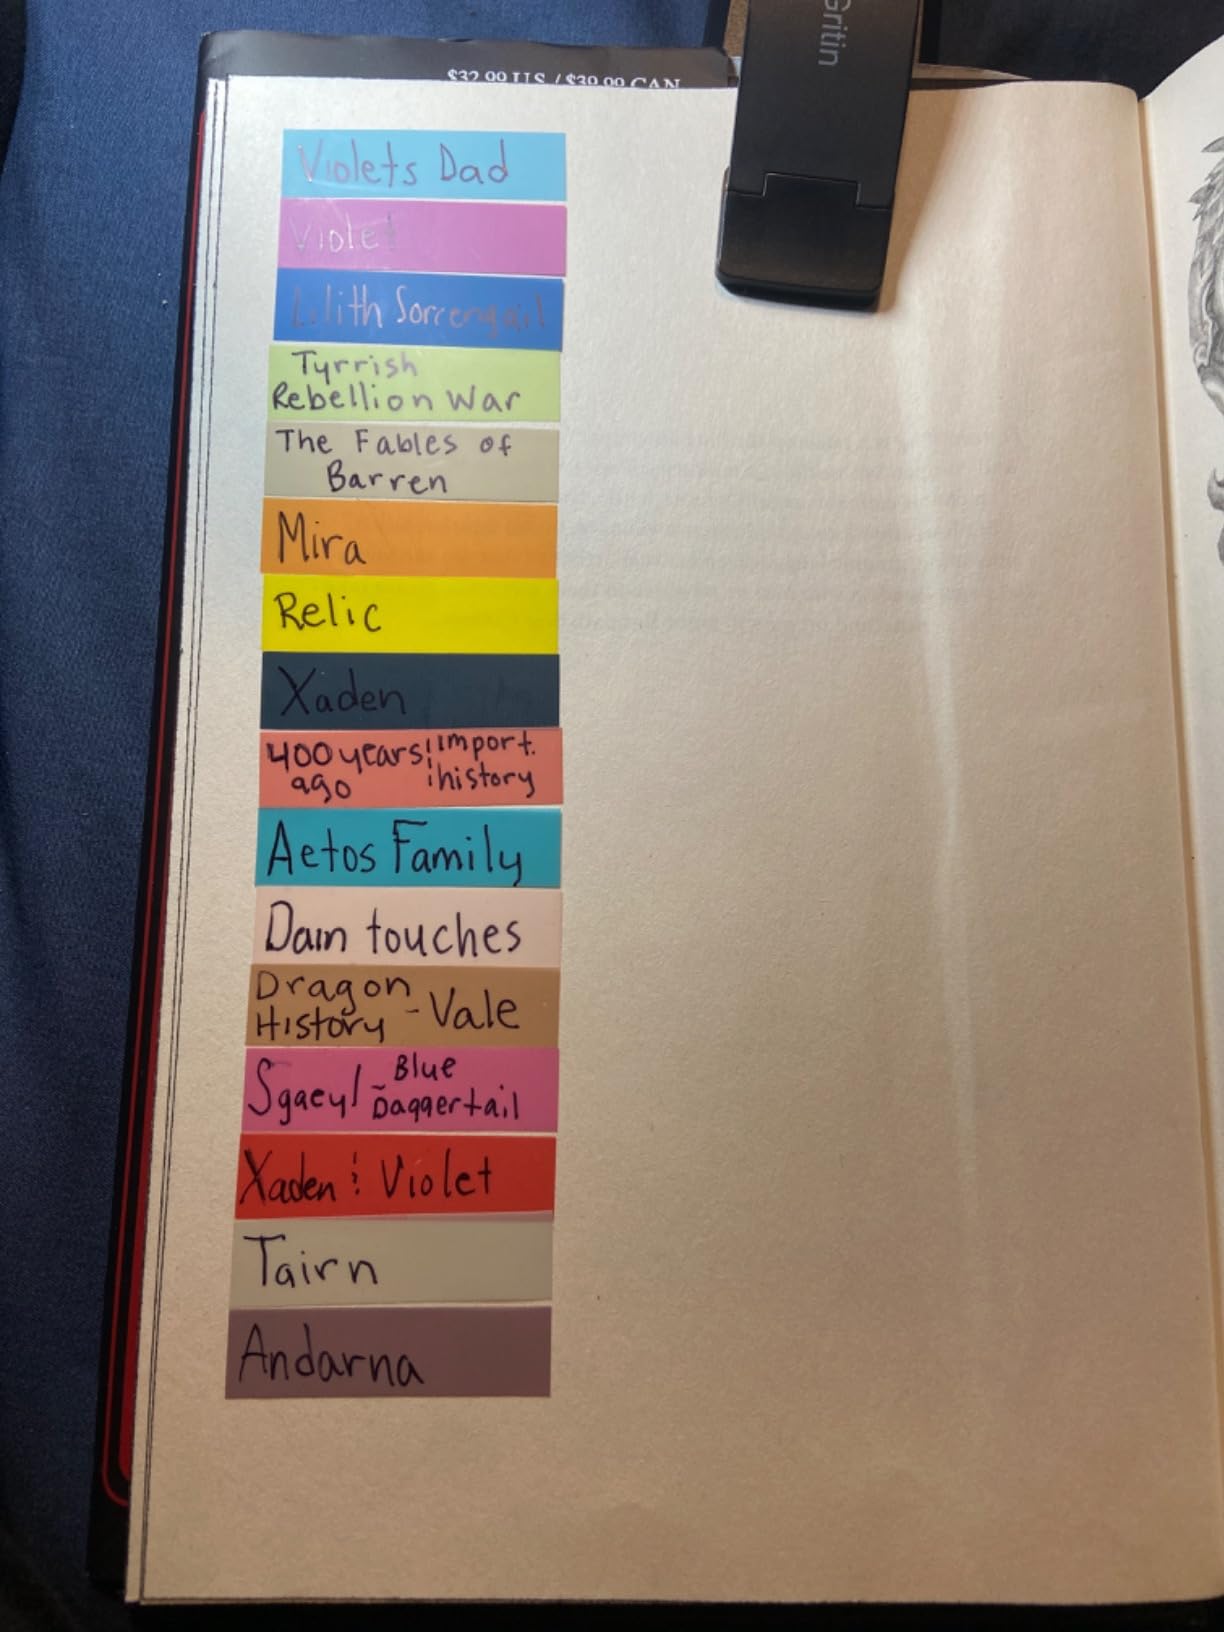 $32.99 US / $39.99 CAN
Gritin
Violets Dad
Violet
Lilith Sorrengail
Tyrrish
Rebellion War
The Fables of
Barren
Mira
Relic
Xaden
400 years import.
ago history
Aetos Family
Dain touches
Dragon
History - Vale
Sgaeyl - Blue
Daggertail
Xaden & Violet
Tairn
Andarna